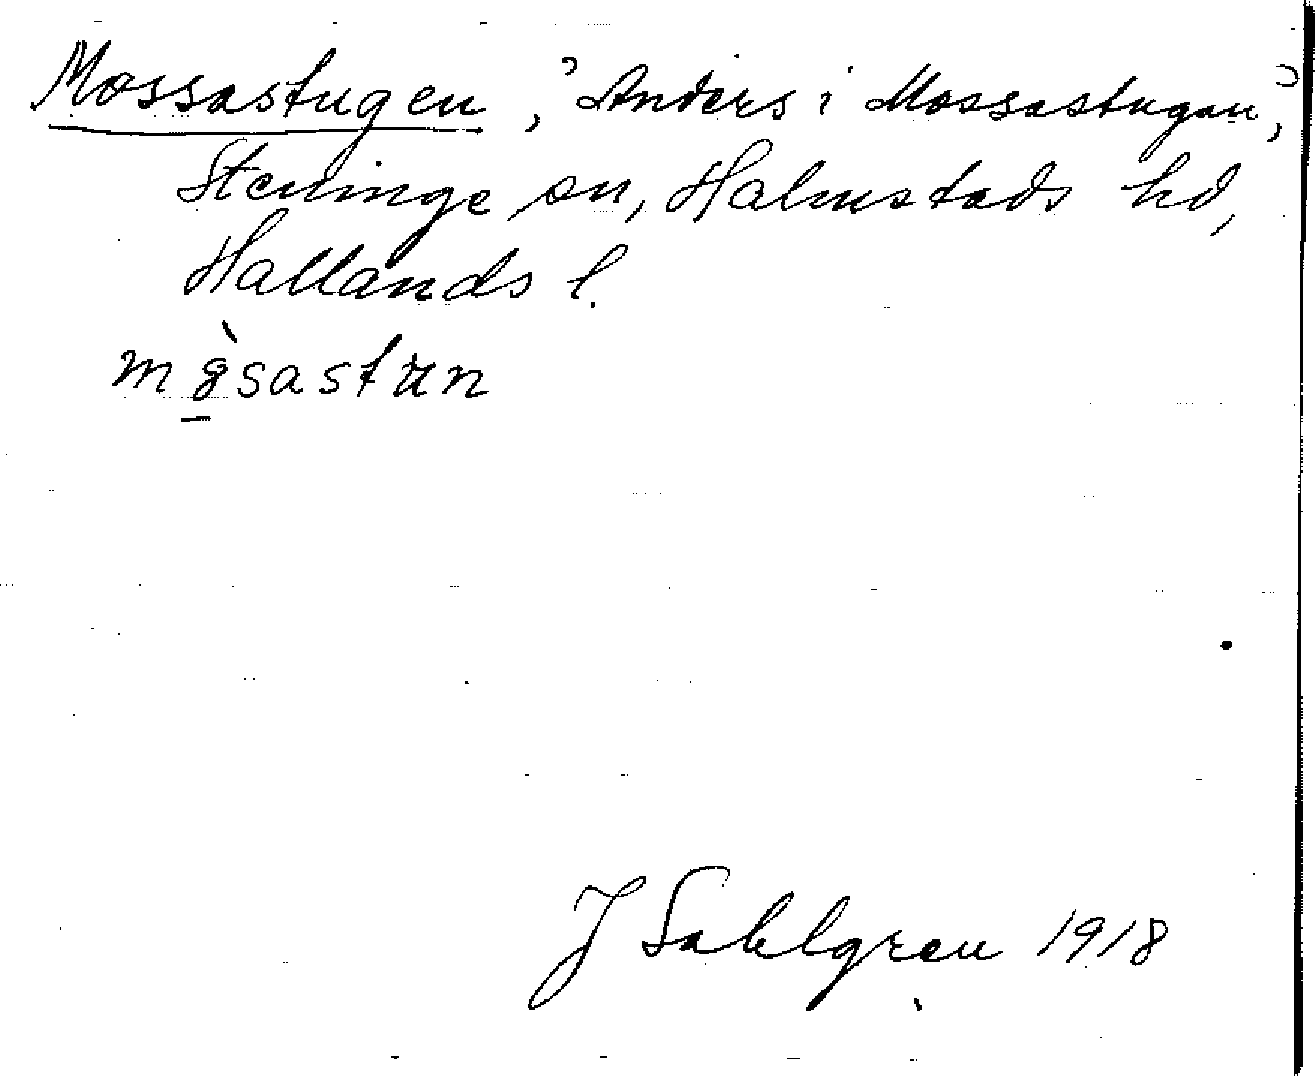 Mossastugen, "Anders i Mossastugan",
Steninge sn, Halmstads hd,
Hallands l.
J Sahlgren 1918